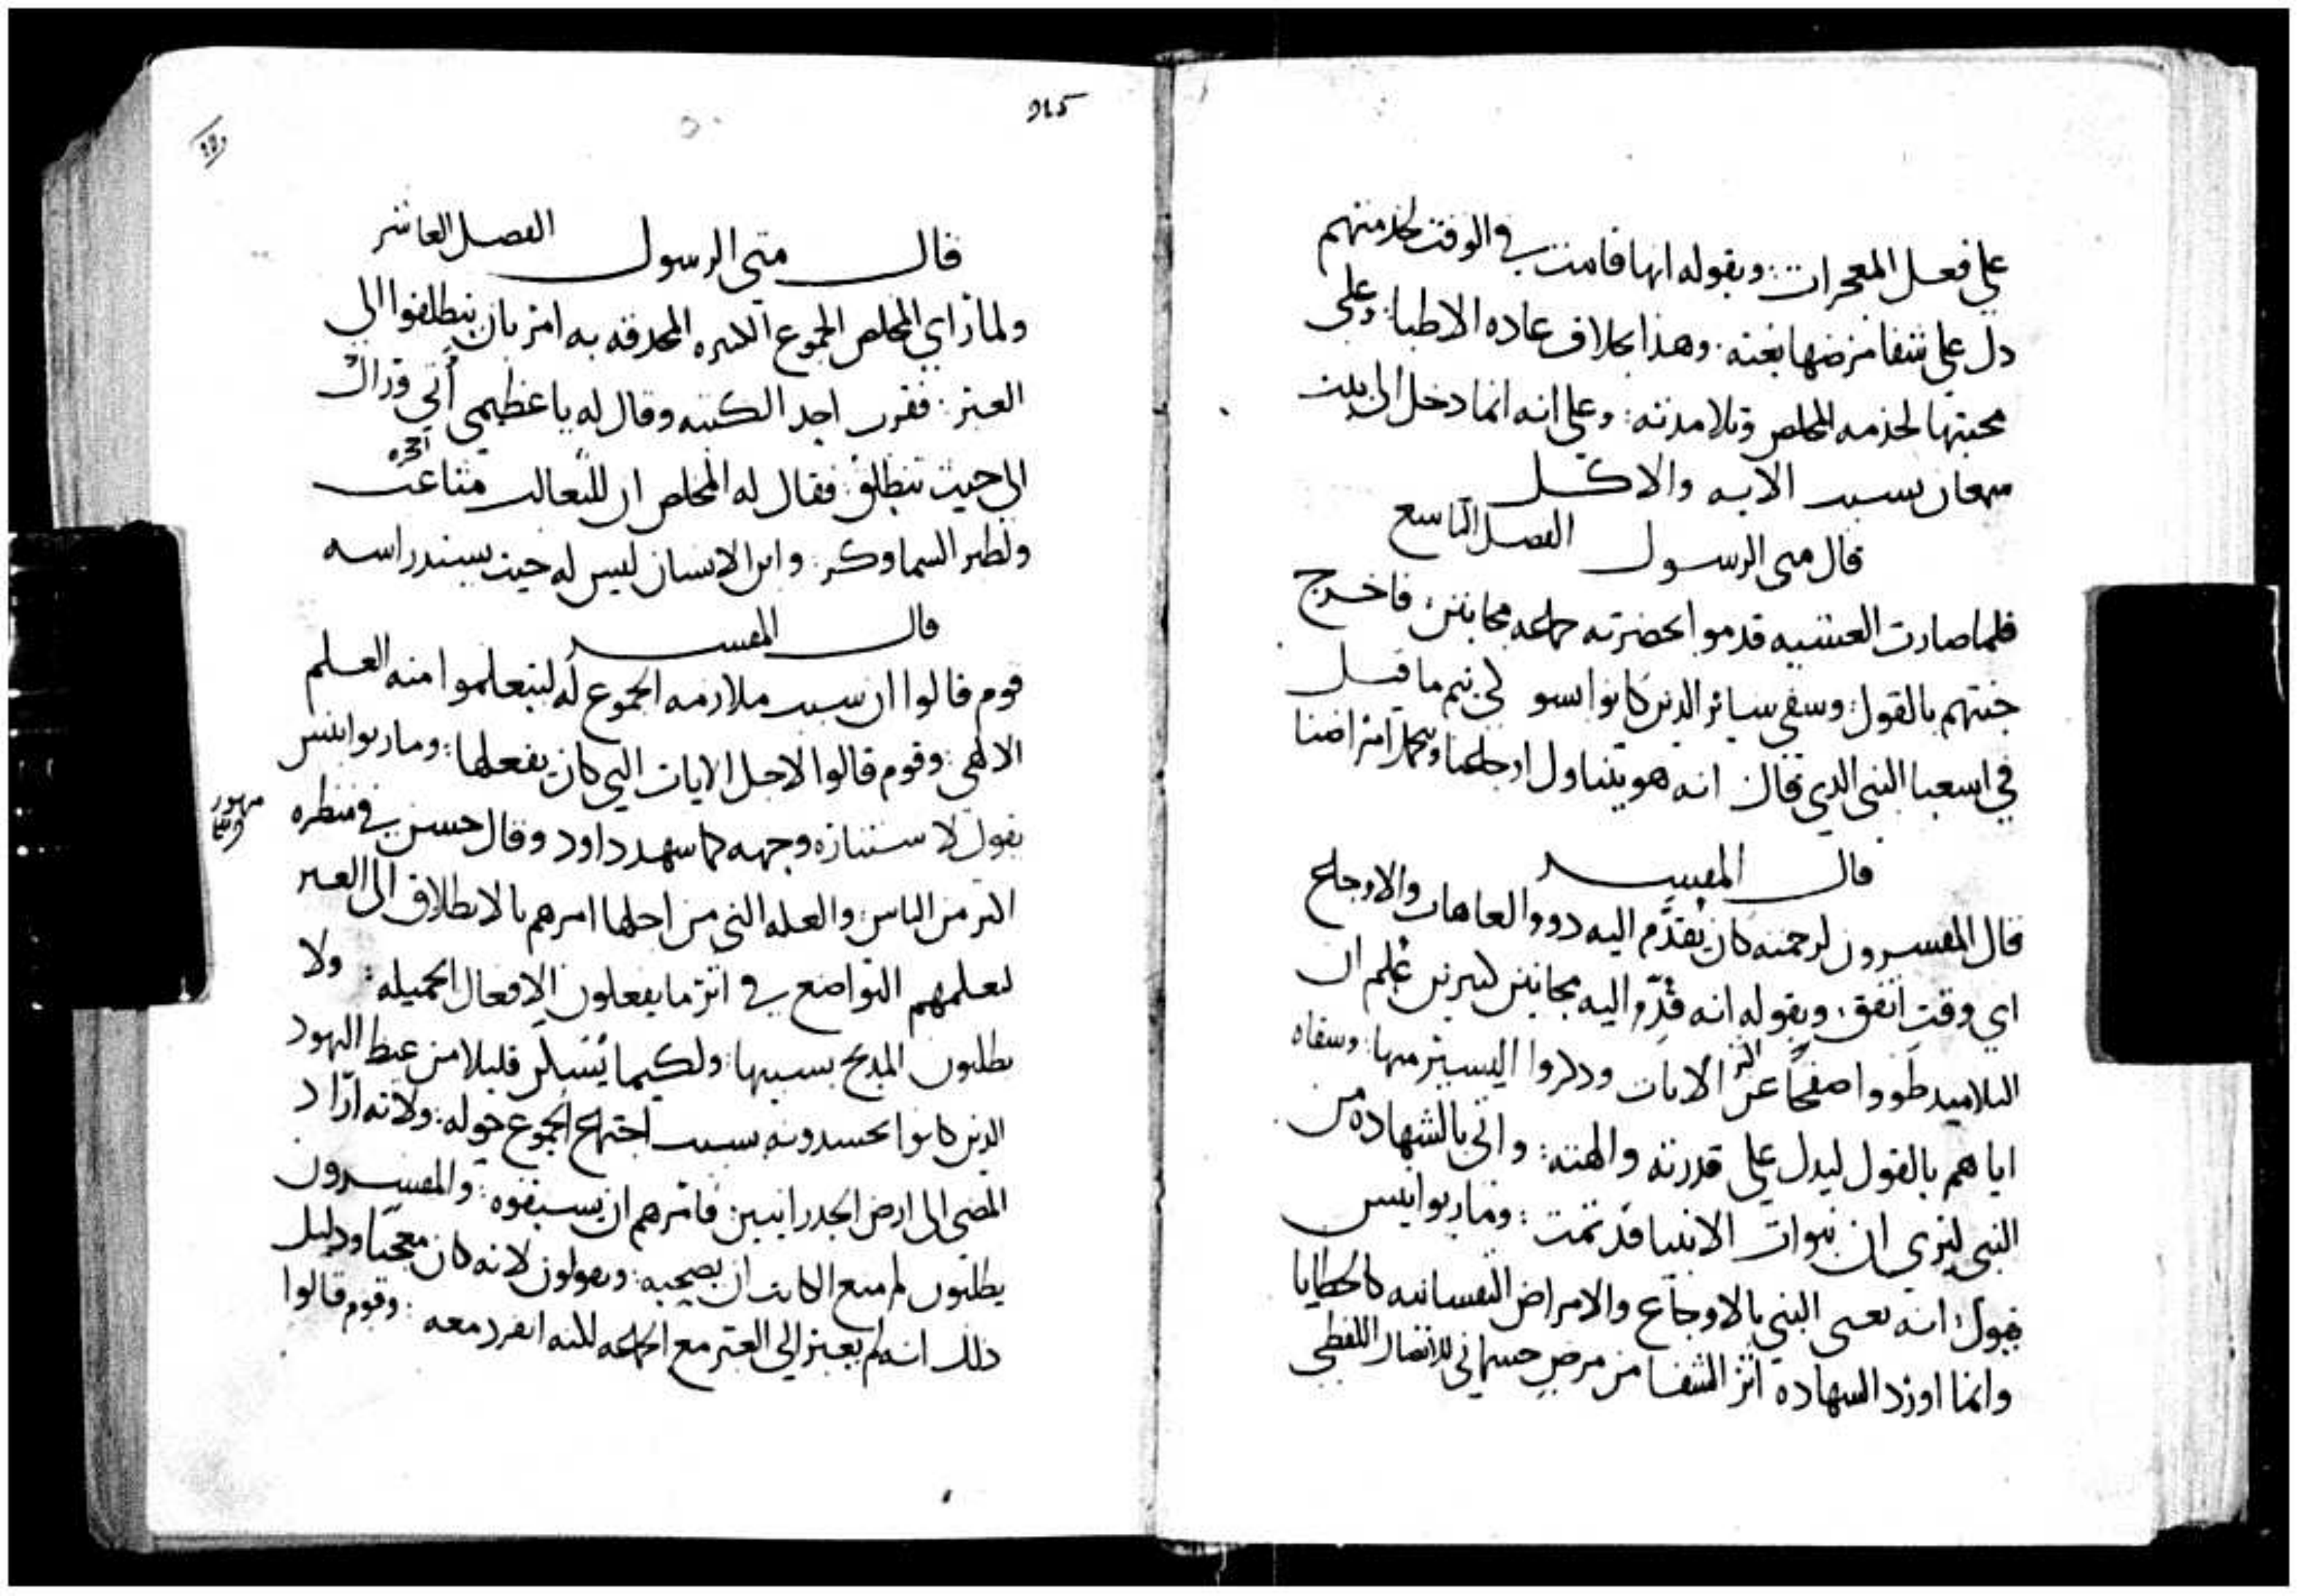 علي فعل المعجزات : وبقوله انها قامت في الوقت لخدمتهم
دل علي شفا مرضها بغته . وهذا بخلاف عاده الاطبا : وعلي
محبتها لخدمه المخلص وتلامدته : وعلي انه انما دخل الي بيت
سمعان بسبب الايه والاكل
قال متى الرسول الفصل التاسع
فلما صارت العشيه قدموا بحضرته جماعه مجانين : فاخرج
جنتهم بالقول : وسفي سائر الدين كانوا بسو لكي يتم ما قيل
في اسعيا النبي الدي قال انه هو يتناول اوجاعنا ويحمل امراضنا
قال المفسر
قال المفسرون لرحمته كان يقدَّم اليه دوو العاهات والاوجاع
اي وقت اتفق . وبقوله انه قُدِّم اليه مجانين كثيرين عُلم ان
التلاميد طووا صفحًا عن اكثر الايات ودكروا اليسير منها : وسفاه
اياهم بالقول ليدل علي قدرته والهيته : واتي بالشهاده من
النبي ليري ان نبوات الانبيا قد تمت : ومار يوانيس
يقول انه يعني النبي بالاوجاع والامراض النفسانيه كالخطايا
وانما اورد الشهاده اثر الشفا من مرض جسماني للاتصال اللفظي
965
قال متى الرسول الفصل العاشر
ولما راي المخلص الجموع الكثيره المحدقه به امر بان ينطلقوا الي
العبر : فقرب احد الكتبه وقال له يا عظيمي أتي وراك
الي حيث تنطلق : فقال له المخلص ان للثعالب مثاعب
اجحره
ولطير السما وكر : وابن الانسان ليس له حيث يسند راسه
قال المفسر
قوم قالوا ان سبب ملازمه الجموع له ليتعلموا منه العلم
الالهي : وقوم قالوا لاجل الايات التي كان يفعلها : ومار يوانيس
يقول لاستناره وجهه كما سهد داود وقال حسن في منظره
اكثر من الناس : والعله التي من اجلها امرهم بالانطلاق الي العبر
لتعلمهم التواضع في اثر ما يفعلون الافعال الجميله : ولا
يطلبون المديح بسببها : ولكيما يُسَكِّن قليلا من غيظ اليهود
الدين كانوا يحسدونه بسبب اجتماع الجموع حوله : ولانه اراد
المضي الي ارض الجدرانيين فامرهم ان يسبقوه : والمفسرون
يطلبون لم منع الكاتب ان يصحبه : ويقولون لانه كان معجبًا ودليل
دلك انه لم يعبر الي العبر مع الجماعه لكنه انفرد معه : وقوم قالوا